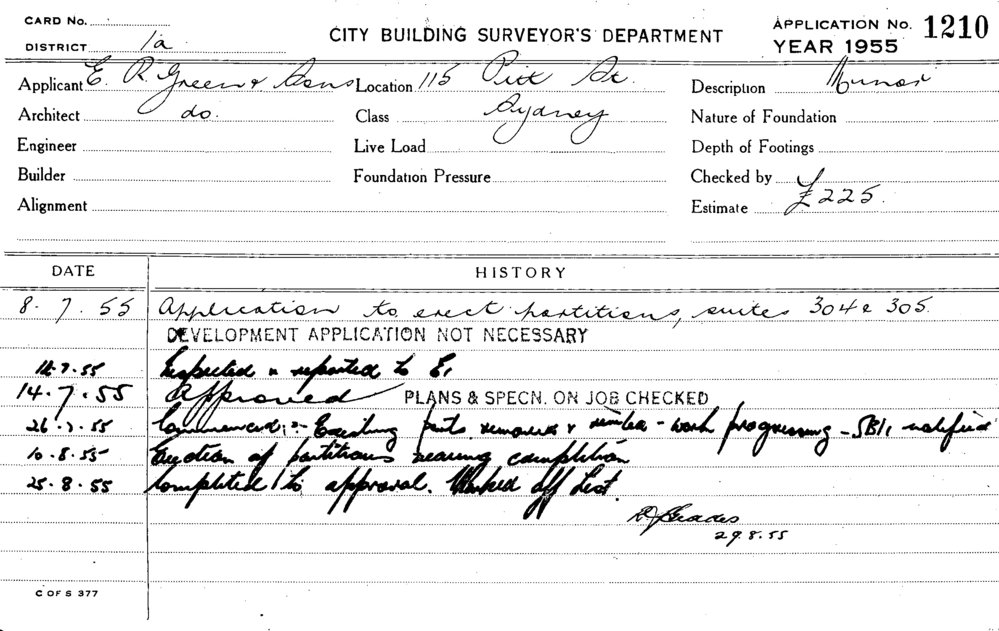 CARD No.
DISTRICT 1a
CITY BUILDING SURVEYOR'S DEPARTMENT
APPLICATION No. 1210
YEAR 1955
Applicant E. R. Green & Sons Location 115 Pitt St. Description Minor
Architect do. Class Sydney Nature of Foundation
Engineer Live Load Depth of Footings
Builder Foundation Pressure Checked by
Alignment Estimate £225.
DATE HISTORY
8.7.55 Application to erect partitions, suites 304 & 305.
DEVELOPMENT APPLICATION NOT NECESSARY
7.55 Inspected & reported to
14.7.55 Approved PLANS & SPECN. ON JOB CHECKED
26.7.55 Commenced:- Existing parts removed & - work progressing - SBI, notified
10.8.55 Erection of partitions nearing completion
25.8.55 Completed to approval. Marked off List.
29.8.55
C OF S 377